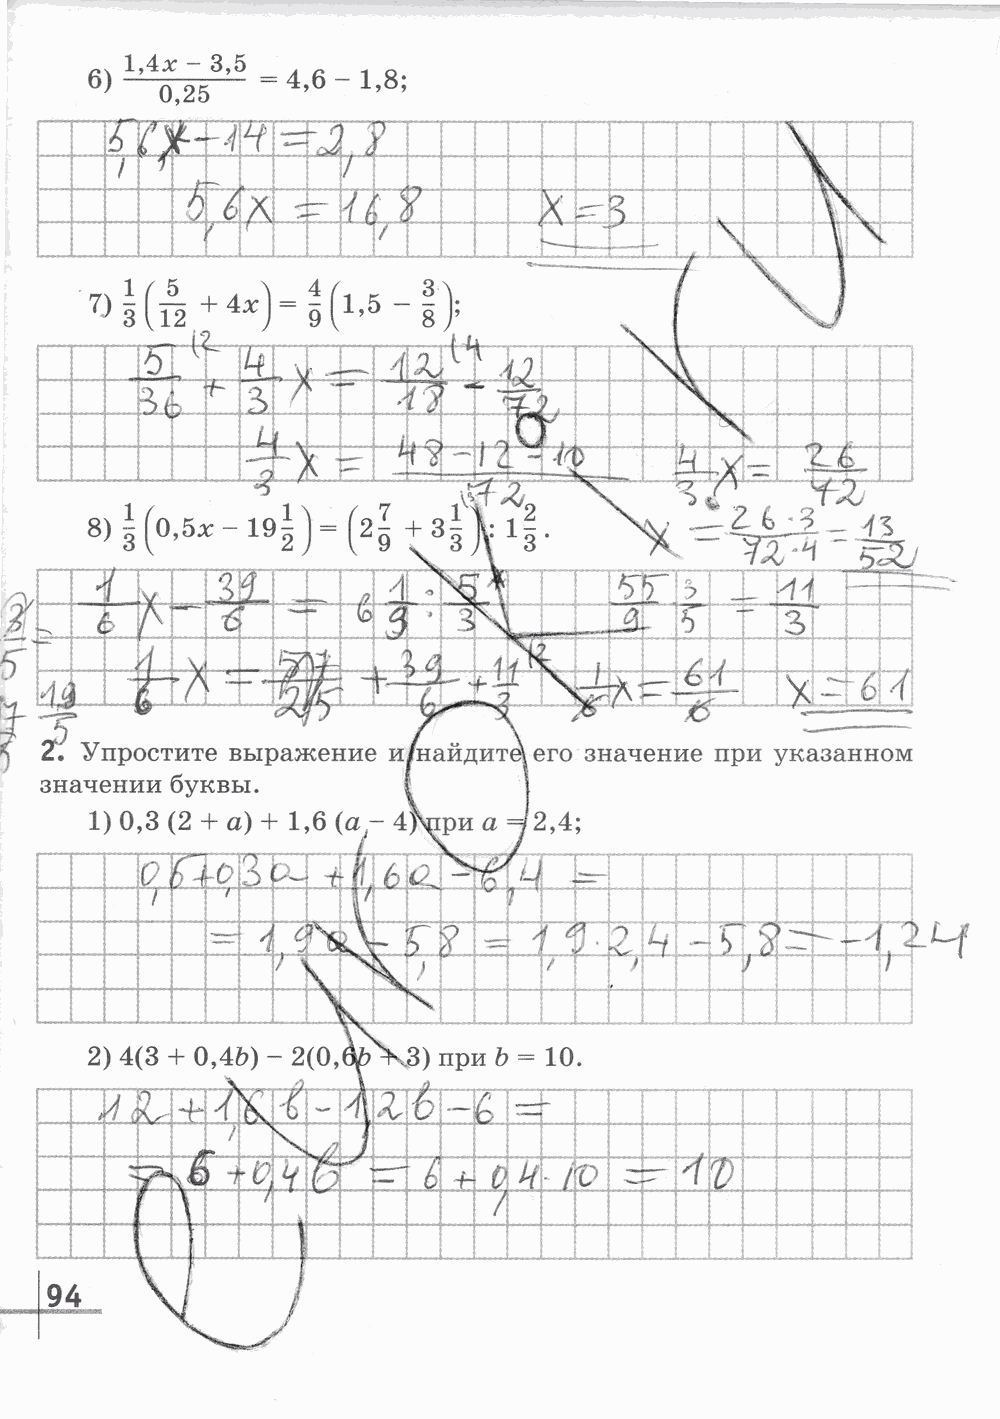 6) (1,4x − 3,5)/0,25 = 4,6 − 1,8;
5,6x − 14 = 2,8
5,6x = 16,8 x = 3
7) 1/3 (5/12 + 4x) = 4/9 (1,5 − 3/8);
5/36 (2 + 4/3 x = 12/18 (4 − 12/72
4/3 x = (48 − 12 − 10)/72 4/3 x = 26/72
x = (26·3)/(72·4) = 13/52
8) 1/3 (0,5x − 19 1/2) = (2 7/9 + 3 1/3) : 1 2/3.
1/6 x − 39/6 = 6 1/9 : 5/3 55/9 · 3/5 = 11/3
1/6 x = + 39/6 + 11/3 (2 1/6 x = 61/6 x = 61
19/5
2. Упростите выражение и найдите его значение при указанном
значении буквы.
1) 0,3 (2 + a) + 1,6 (a − 4) при a = 2,4;
0,6 + 0,3a + 1,6a − 6,4 =
= 1,9a − 5,8 = 1,9 · 2,4 − 5,8 = −1,24
2) 4(3 + 0,4b) − 2(0,6b + 3) при b = 10.
12 + 1,6b − 1,2b − 6 =
= 6 + 0,4b = 6 + 0,4 · 10 = 10
94